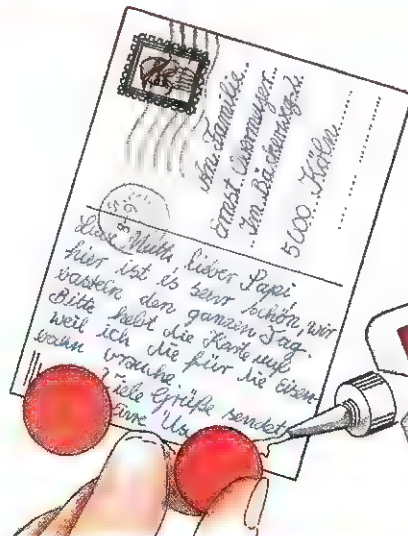 An Familie
Ernst
Im
5000 Köln
Liebe Mutti, lieber Papi,
hier ist es sehr schön, wir
basteln den ganzen Tag.
Bitte hebt die Karte auf
weil ich die für die Eisen
bahn brauche
Viele Grüße sendet
Eure